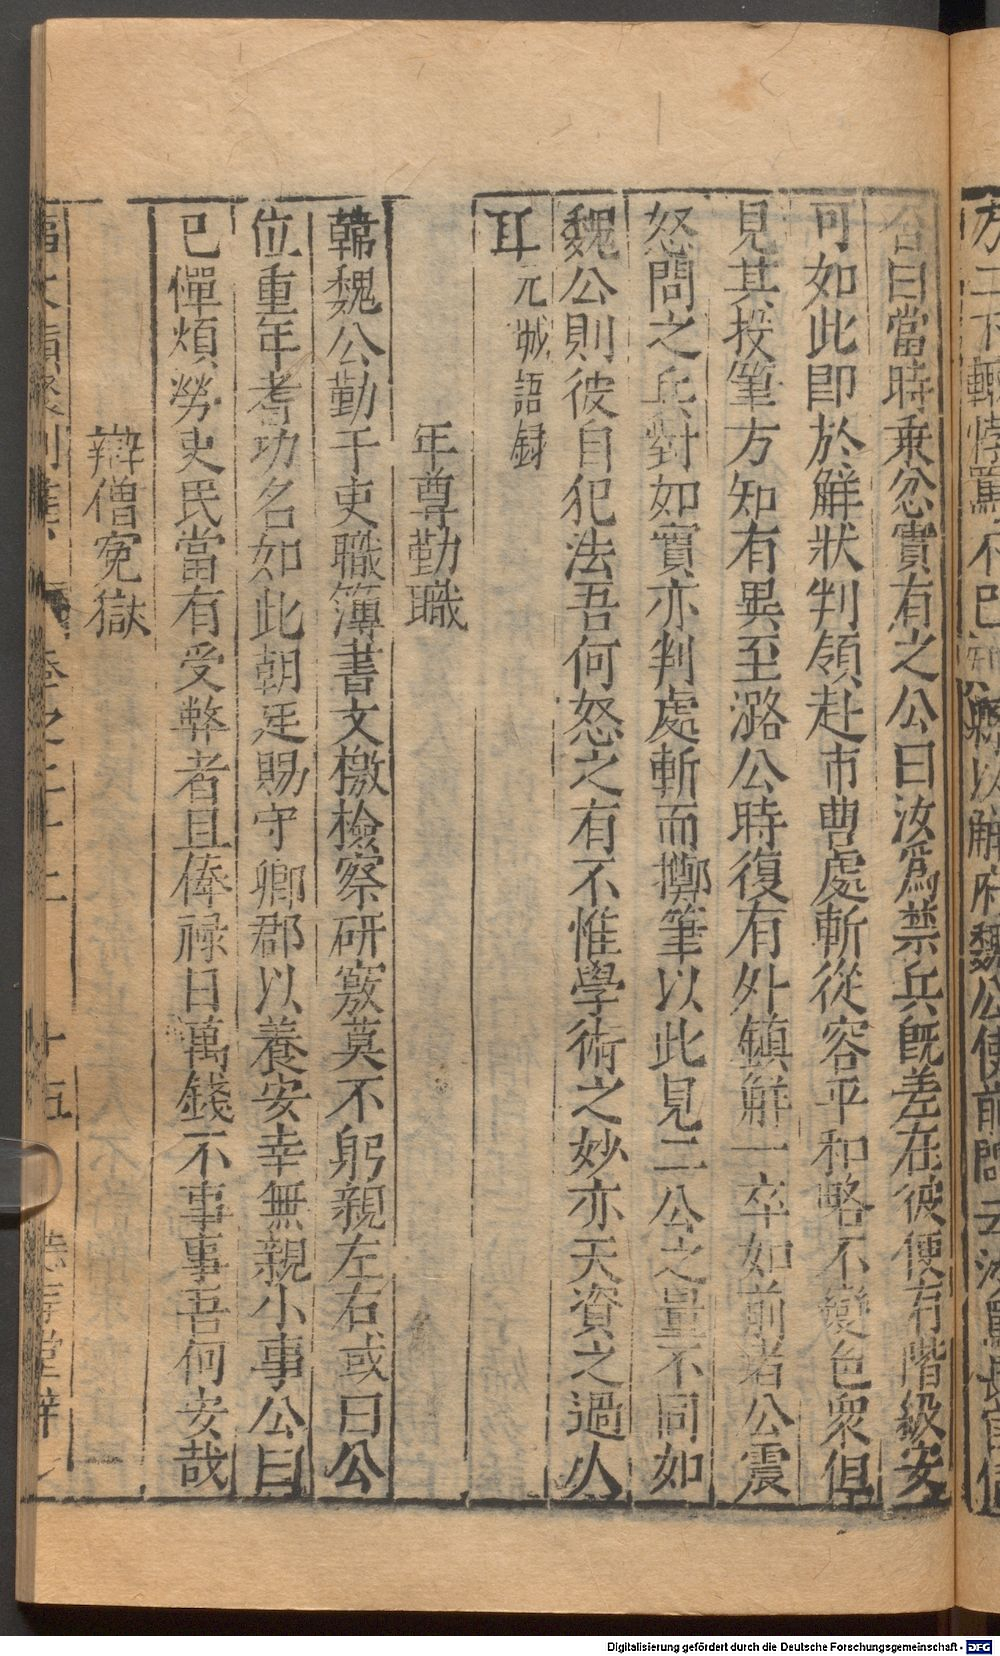 方二下輙悖罵不已知縣以解府魏公使前問云汝罵長官信
否曰當時乗忿實有之公曰汝爲禁兵旣差在彼便有階級安
可如此即於解狀判領赴市曹處斬從容平和略不變色衆但
見其投筆方知有異至潞公時復有外鎮解一卒如前者公震
怒問之兵對如實亦判處斬而擲筆以此見二公之量不同如
魏公則彼自犯法吾何怒之有不惟學術之妙亦天資之過人
耳 元城語録
年尊勤職
韓魏公勤于吏職簿書文檄檢察研覈莫不躬親左右或曰公
位重年耆功名如此朝廷賜守鄉郡以養安幸無親小事公曰
已憚煩勞吏民當有受弊者且俸禄日萬錢不事事吾何安哉
辯僧冤獄
事文類聚別集 卷之二十二 十五
Digitalisierung gefördert durch die Deutsche Forschungsgemeinschaft - DFG